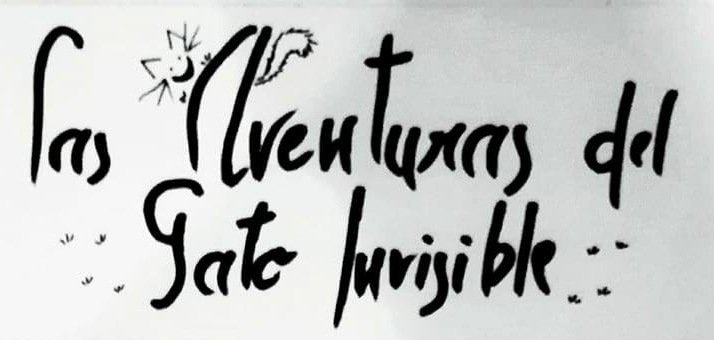 Las Aventuras del
Gato Invisible